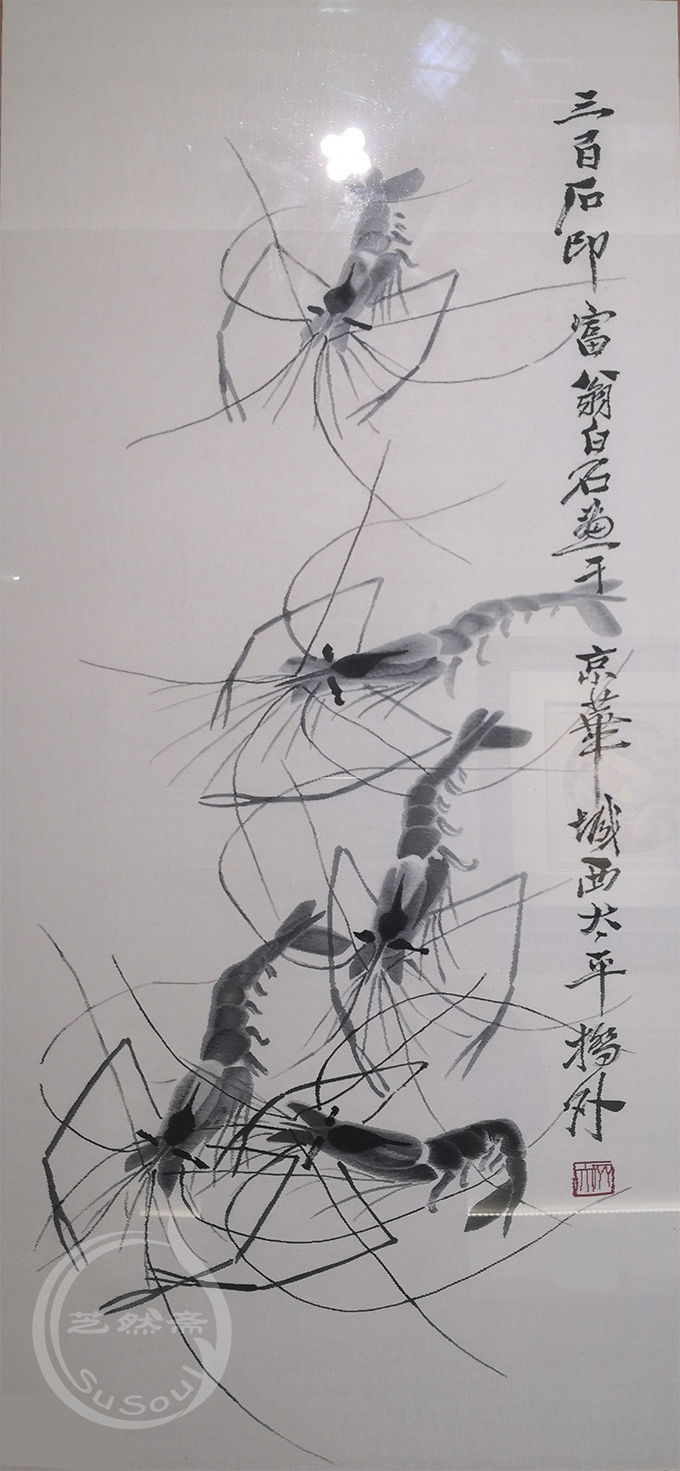 三百石印富翁白石画于京華城西太平橋外
芝然斋
SuSoul